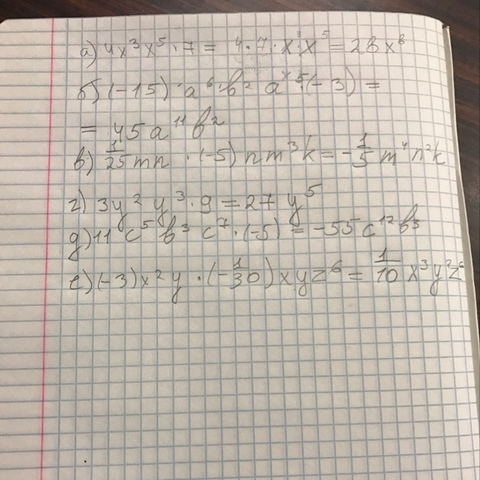 а) 4x³x⁵·7 = 4·7·x³x⁵ = 28x⁸
б) (-15)·a⁶·b²·a⁵·(-3) =
= 45a¹¹b²
в) 1/25 mn·(-5)nm³k = -1/5 m⁴n²k
г) 3y²y³·9 = 27y⁵
д) 11c⁵b³c⁷·(-5) = -55c¹²b³
е) (-3)x²y·(-1/30)xyz⁶ = 1/10 x³y²z⁶